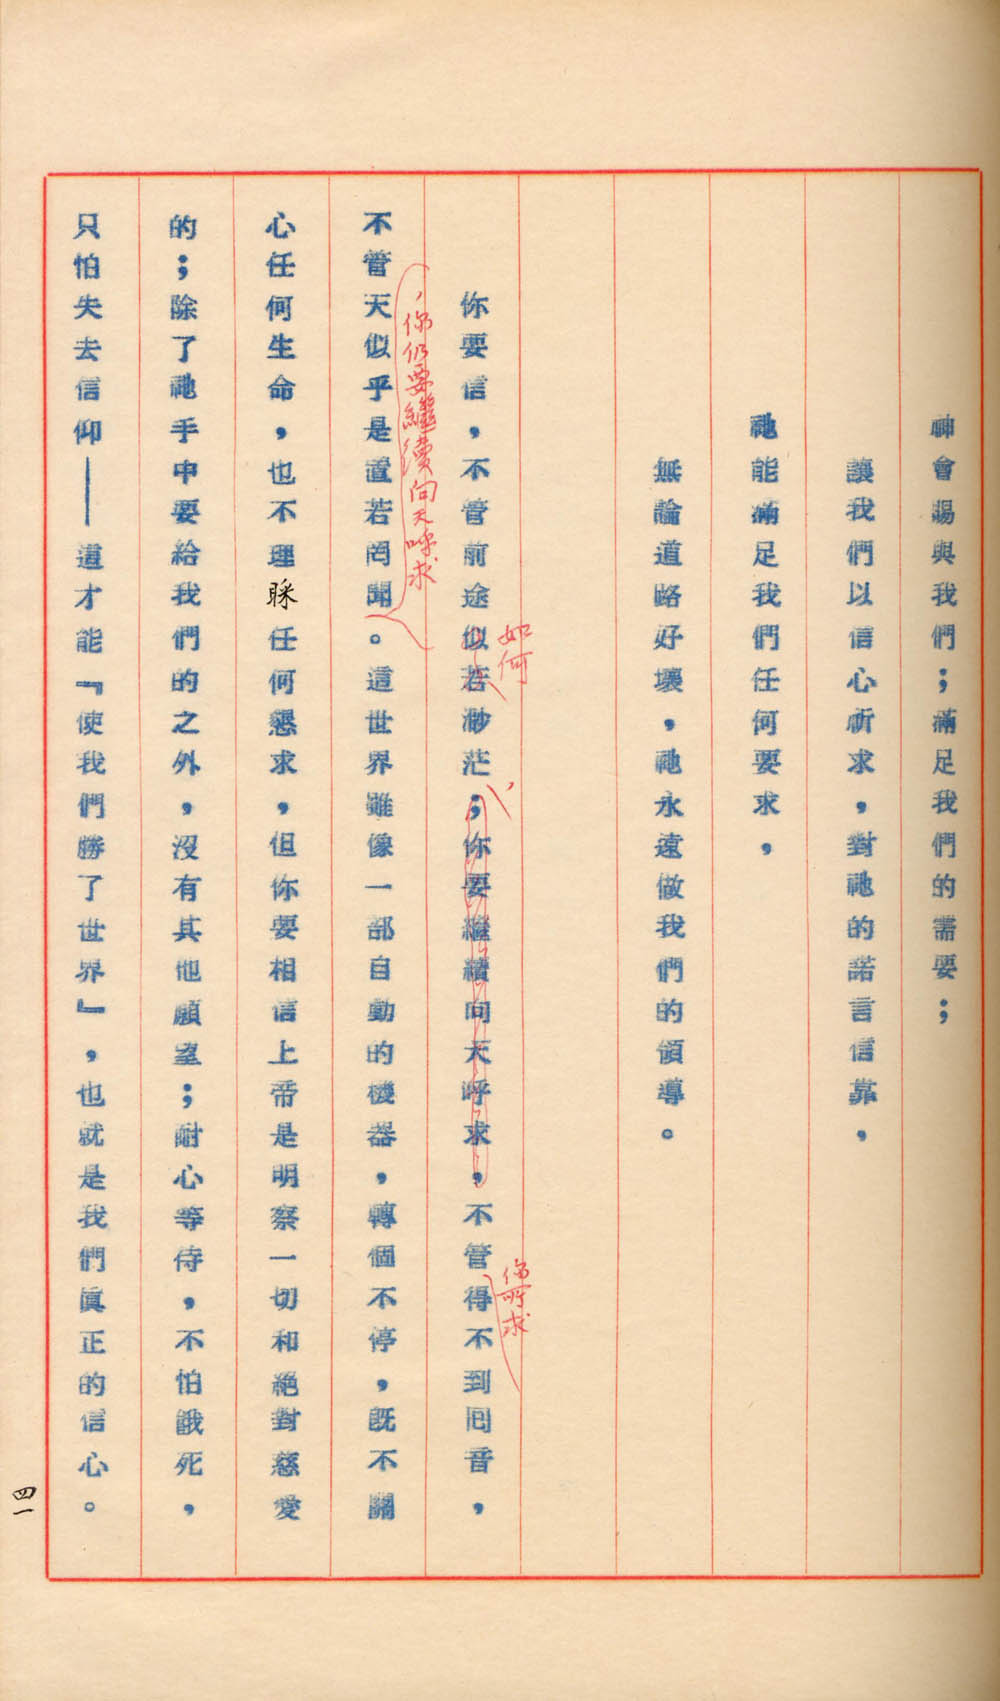 神會賜與我們；滿足我們的需要；
讓我們以信心祈求，對祂的諾言信靠，
祂能滿足我們任何要求，
無論道路好壞，祂永遠做我們的領導。
如何
你呼求
你要信，不管前途似若渺茫；你要繼續向天呼求，不管得不到回音，
，你仍要繼續向天呼求
不管天似乎是置若罔聞。這世界雖像一部自動的機器，轉個不停，既不關
心任何生命，也不理睬任何懇求，但你要相信上帝是明察一切和絕對慈愛
的；除了祂手中要給我們的之外，沒有其他願望；耐心等待，不怕餓死，
只怕失去信仰——這才能『使我們勝了世界』，也就是我們眞正的信心。
四一